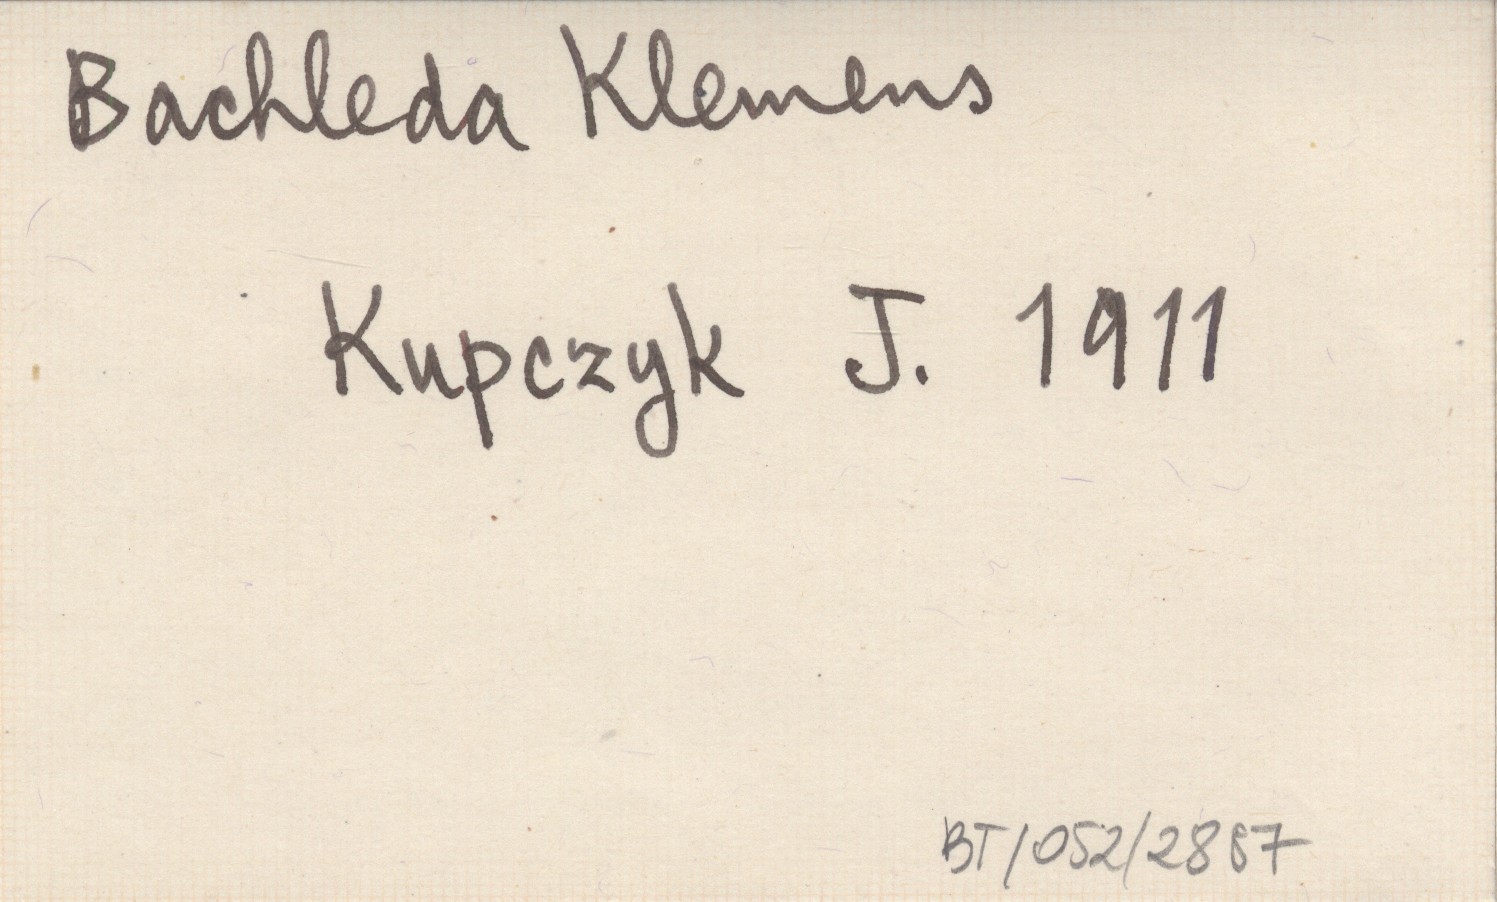 Bachleda Klemens
Kupczyk J. 1911
BT/052/2887